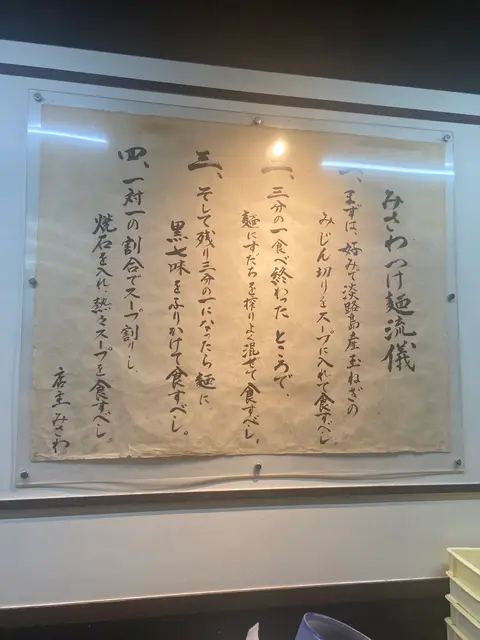 みさわつけ麺流儀
一、まずは、好みで淡路島産玉ねぎの
みじん切りをスープに入れて食すべし。
二、三分の一食べ終わったところで、
麺にすだちを搾りよく混ぜて食すべし。
三、そして残り三分の一になったら麺に
黒七味をふりかけて食すべし。
四、一対一の割合でスープ割りし、
焼石を入れ、熱々スープを食すべし。
店主みさわ